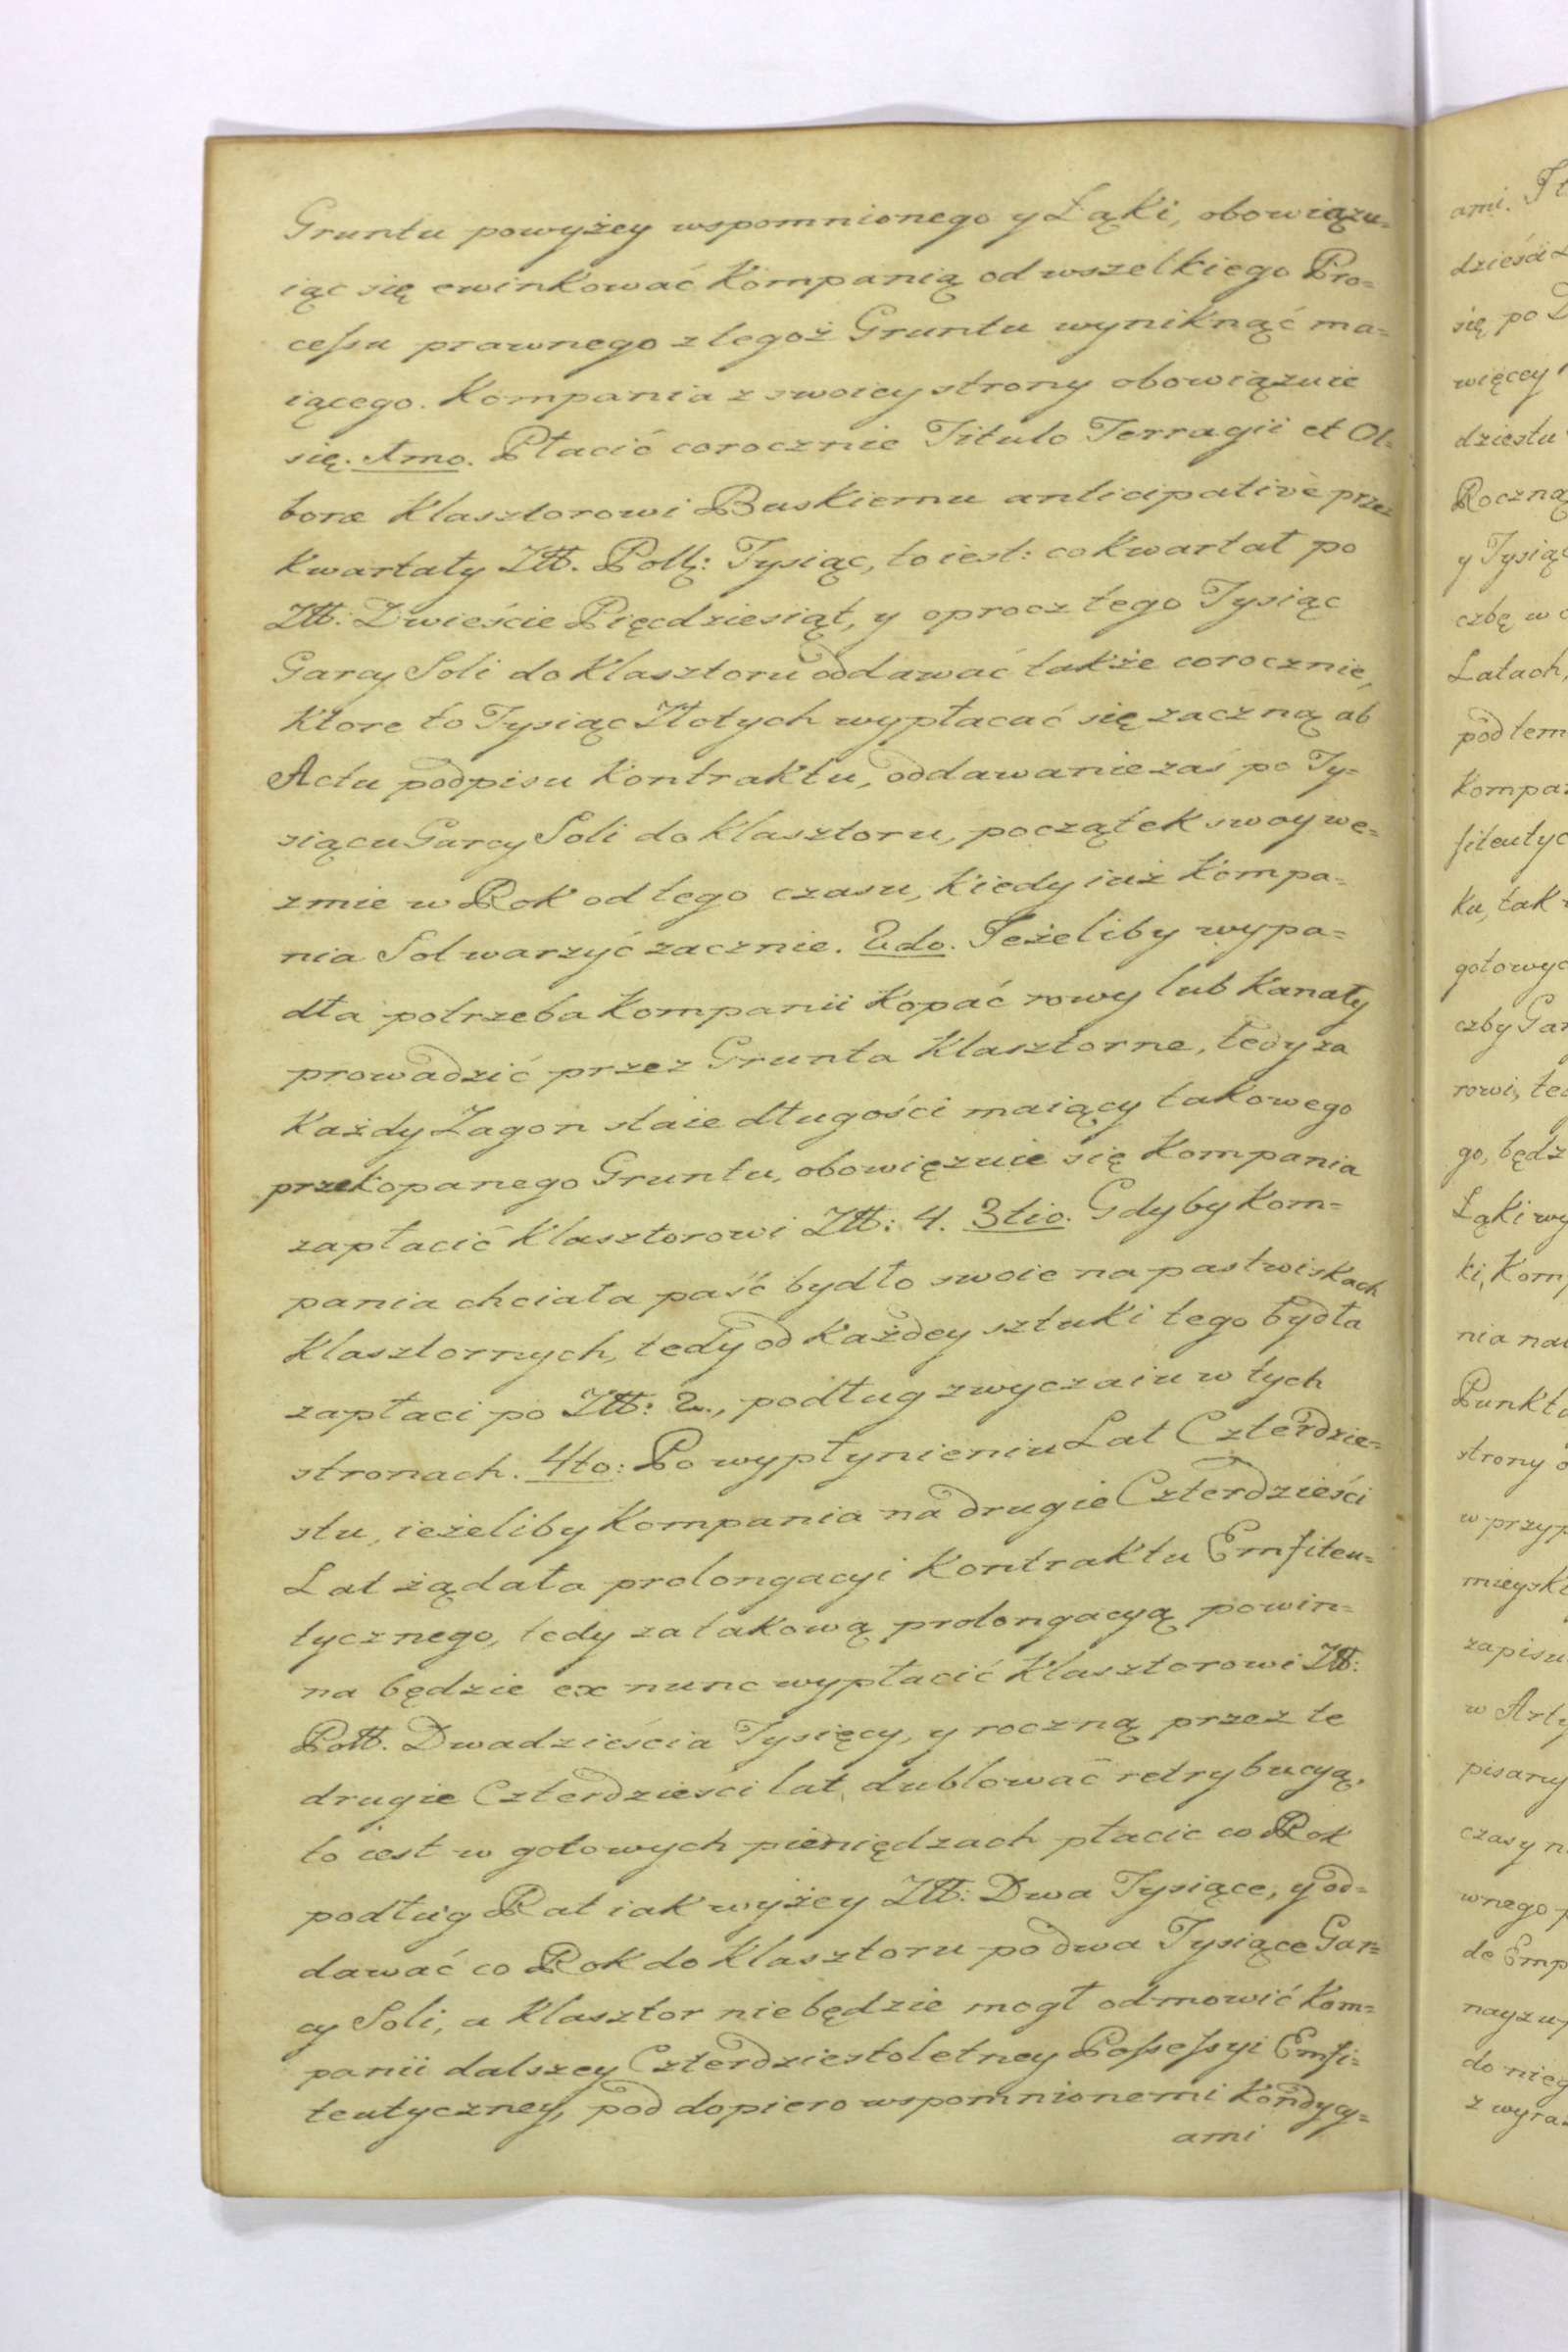 Gruntu powyżey wspomnionego y Łąki, obowiązu=
iąc się ewinkować Kompanią od wszelkiego Pro=
cessu prawnego z tegoż Gruntu wyniknąć ma=
iącego. Kompania z swoiey strony obowiązuie
się. 1mo. Płacić corocznie Titulo Terragii et Ol=
boræ Klasztorowi Buskiemu anticipativè przez
Kwartały Złł. Poll: Tysiąc, to iest: co Kwartał po
Złł: Dwieście Pięcdziesiąt, y oprocz tego Tysiąc
Garcy Soli do Klasztoru oddawać także corocznie,
Ktore to Tysiąc Złotych wypłacać się zaczną ab
Actu podpisu Kontraktu, oddawanie zaś po Ty=
siącu Garcy Soli do Klasztoru, początek swoy we=
zmie w Rok od tego czasu, Kiedy iuż Kompa=
nia Sol warzyć zacznie. 2do. Jeżeliby wypa=
dła potrzeba Kompanii Kopać rowy lub Kanały
prowadzić przez Grunta Klasztorne, tedy za
Każdy Zagon staie długości maiący takowego
przekopanego Gruntu, obowięzuie się Kompania
zapłacić Klasztorowi Złł: 4. 3tio. Gdyby Kom=
pania chciała paść bydło swoie na pastwiskach
Klasztornych, tedy od Każdey sztuki tego bydła
zapłaci po Złł: 2., podług zwyczaiu w tych
stronach. 4to: Po wypłynieniu Lat Czterdzie=
stu, ieżeliby Kompania na drugie Czterdzieści
Lat żądała prolongacyi Kontraktu Emfiteu=
tycznego, tedy za takową prolongacyą powin=
na będzie ex nunc wypłacić Klasztorowi Złł:
Poll. Dwadzieścia Tysięcy, y roczną przez te
drugie Czterdzieści lat dublować retrybucyą,
to iest w gotowych pieniędzach płacic co Rok
podług Rat iak wyżey Złł: Dwa Tysiące, y od=
dawać co Rok do Klasztoru po dwa Tysiące Gar=
cy Soli, a Klasztor nie będzie mogł odmowić Kom=
panii dalszey Czterdziestoletney Possessyi Emfi=
teutyczney, pod dopiero wspomnionemi Kondycy=
ami
ami.
dzieści
się po
więcey
dziestu
Roczną
y Tysiąc
czbę w
Latach,
pod tem
Kompa=
fiteutyc
Ku, tak
gotowyc
czby Gar
rowi, te
go, będz
Łąki wy
ki, Kom
nia na
Punkt
strony
w przyp
mieysk
zapisu
w Arty
pisany
czasy n
wnego
de Emp
nayzu
do nieg
z wyra